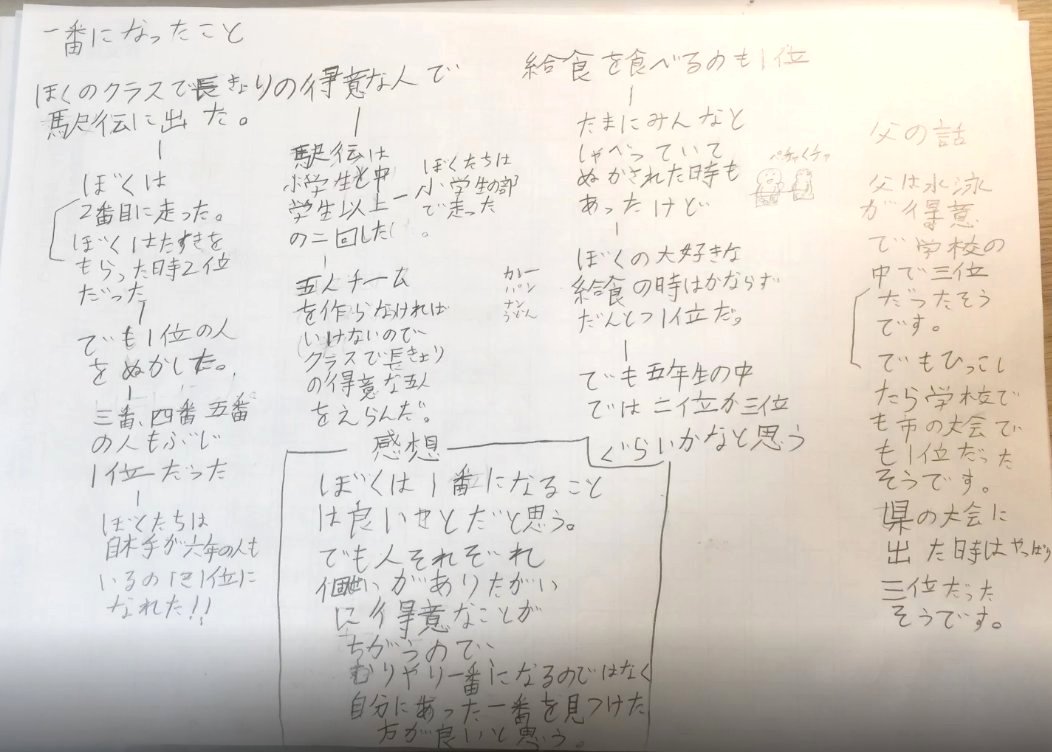 一番になったこと
ぼくのクラスで長きょりの得意な人で
駅伝に出た。
ぼくは
2番目に走った。
ぼくはたすきを
もらった時2位
だった
でも1位の人
をぬかした。
三番、四番五番
の人もぶじ
1位だった
ぼくたちは
相手が六年の人も
いるのに1位に
なれた!!
駅伝は
小学生と中
学生以上
の二回した
。
ぼくたちは
小学生の部
で走った
五人チーム
を作らなければ
いけないので
クラスで長きょり
の得意な五人
をえらんだ。
給食を食べるのも1位
たまにみんなと
しゃべっていて
ぬかされた時も
あったけど
ペチャクチャ
ぼくの大好きな
給食の時はかならず
だんとつ1位だ。
カレー
パン
ナン
うどん
でも五年生の中
では二位か三位
ぐらいかなと思う
父の話
父は水泳
が得意
で学校の
中で三位
だったそう
です。
でもひっこし
たら学校で
も市の大会で
も1位だった
そうです。
県の大会に
出た時はやっぱり
三位だった
そうです。
感想
ぼくは1番になること
は良いことだと思う。
でも人それぞれ
個性がありたがい
に得意なことが
ちがうので、
むりやり一番になるのではなく
自分にあった一番を見つけた
方が良いと思う。